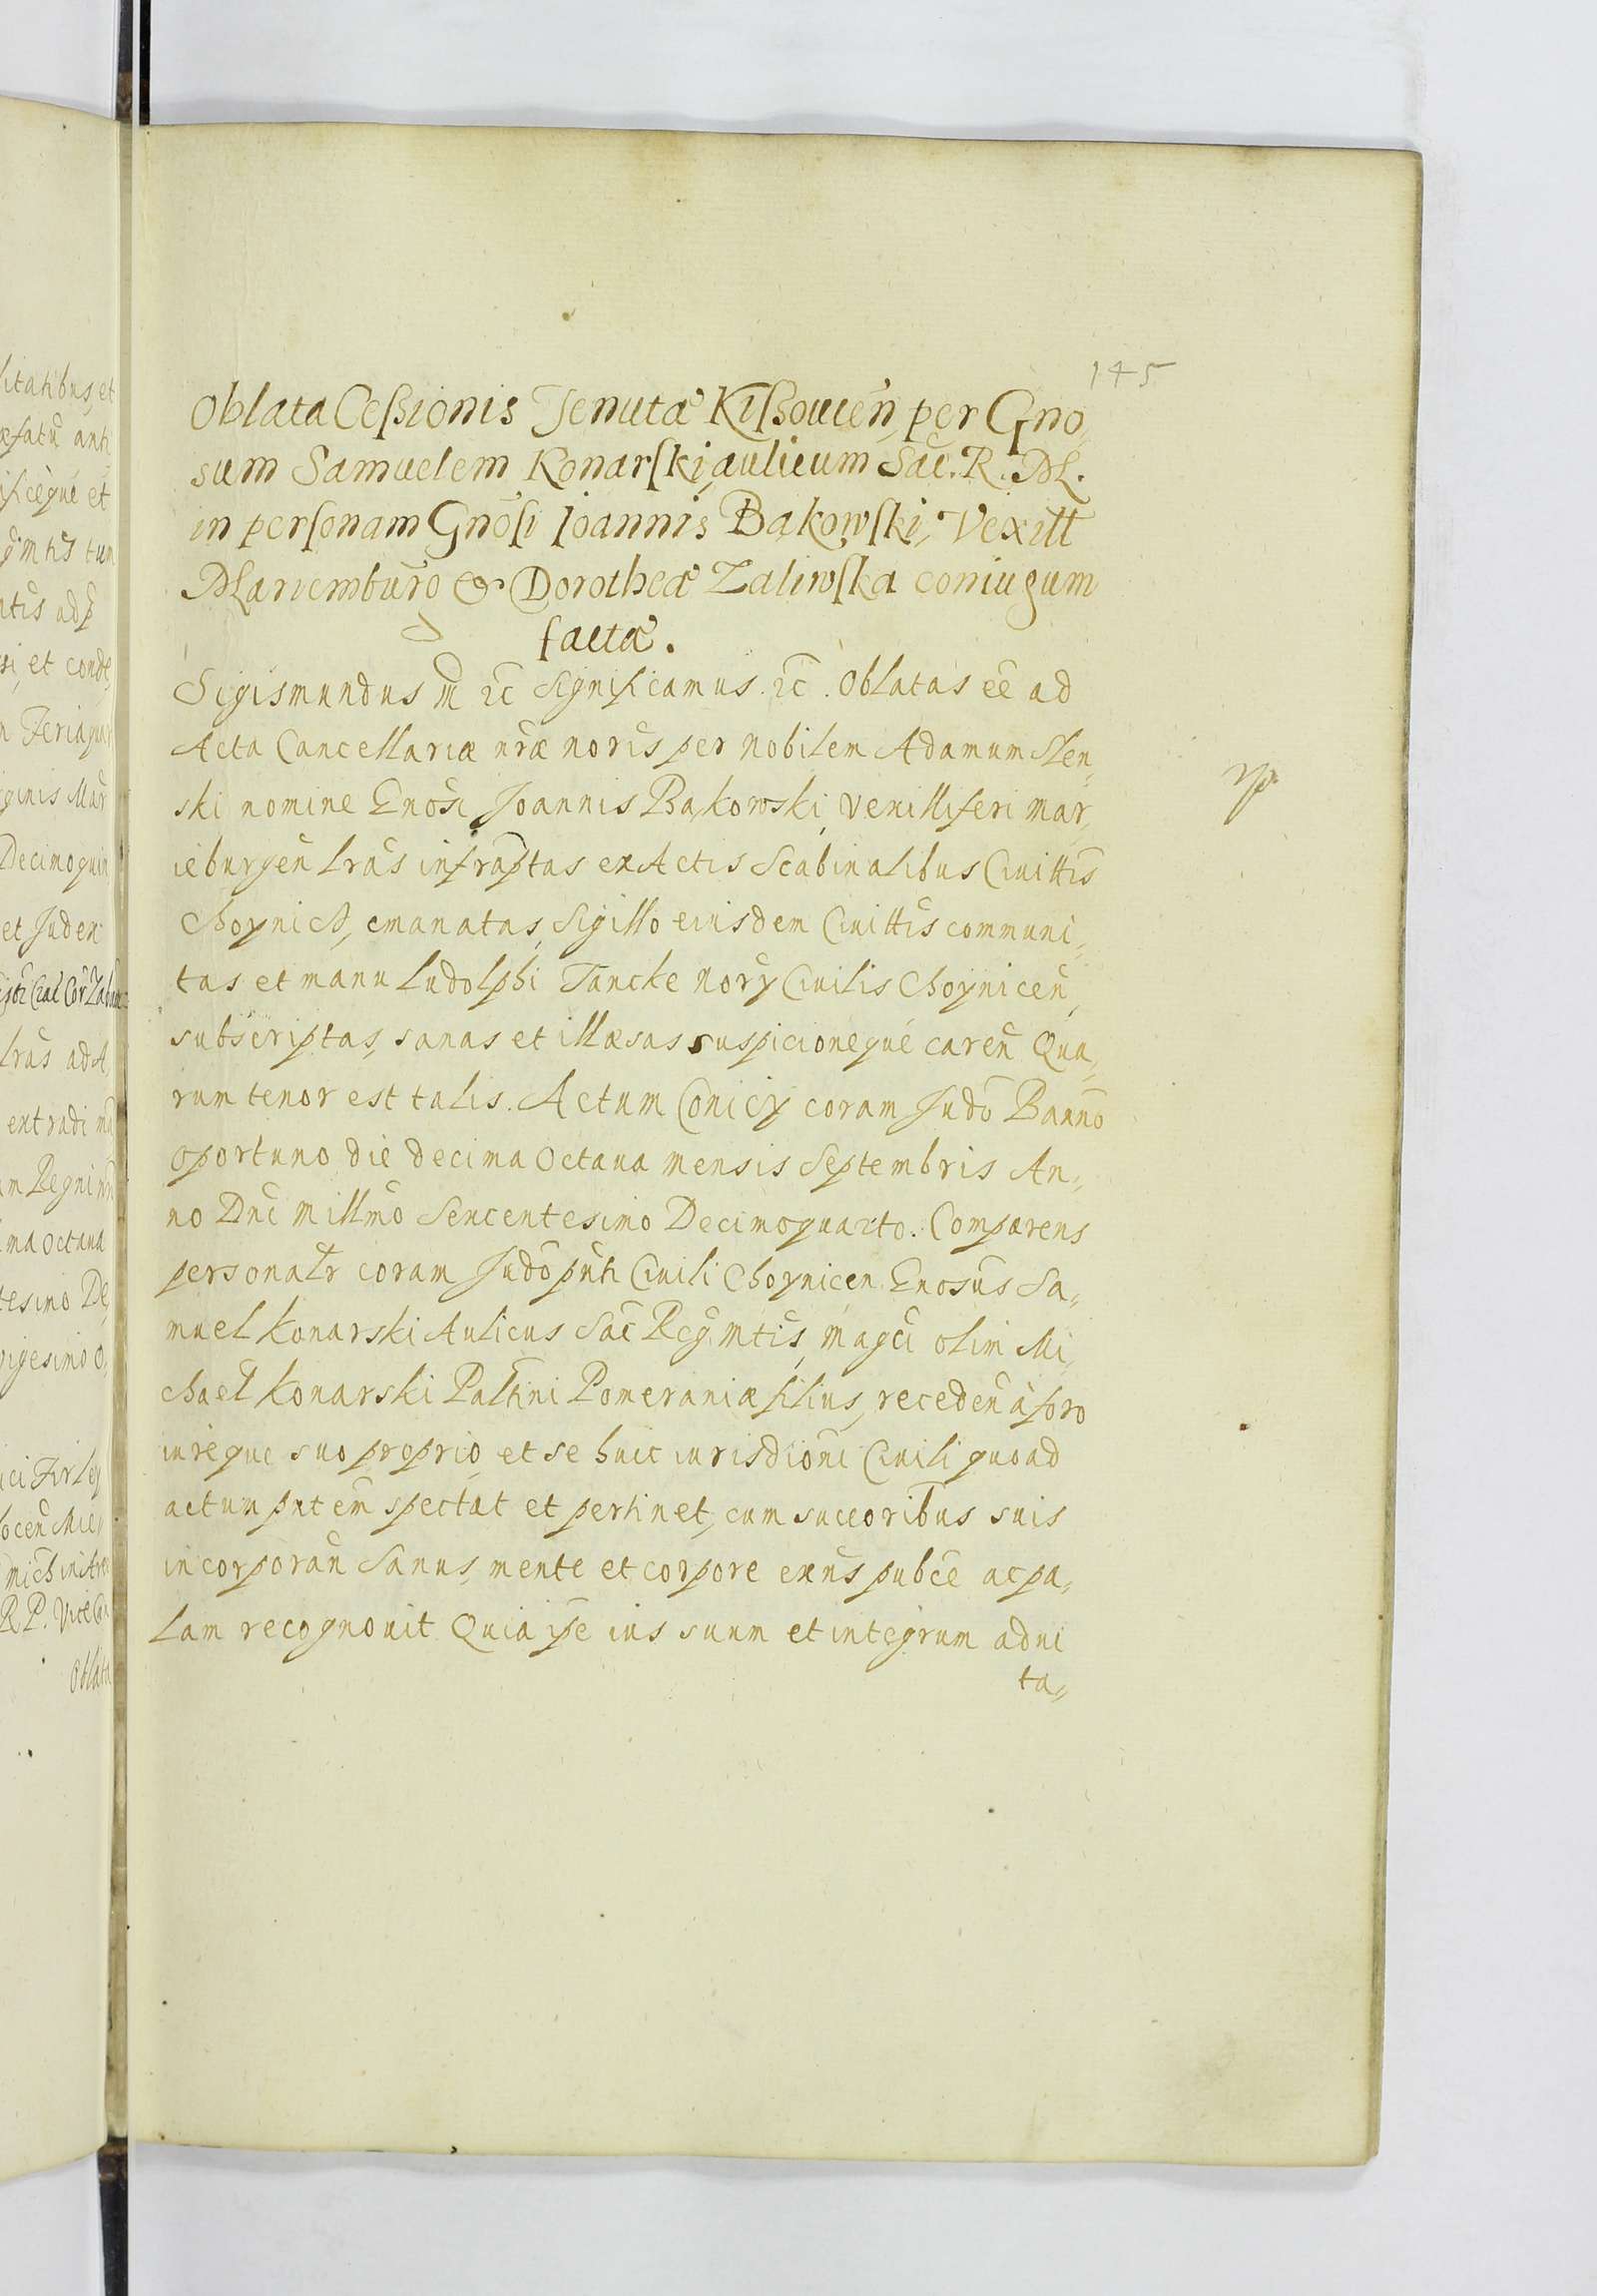 145
Oblata Cessionis Tenutæ Kissouien, per Gno„
sum Samuelem Konarski, aulicum Sac̄. R. M.
in personam Gnōsi Joannis Bąkowski, Vexill
Mariemburg̅ & Dorotheæ Zaliwska coniugum
factæ.
Sigismundus III ꝛc̄ Significamus. ꝛc̄. Oblatas ēē ad
Acta Cancellariæ nr̄æ noris per nobilem Adamum Slen„
ski nomine Gnōsi Joannis Bąkowski, vexilliferi mar„
ieburgen̄ lrās infraptas ex Actis Scabinalibus Ciuitt̄is
Choynich, emanatas, sigillo eiusdem Ciuitt̄is communi„
tas et manu Ludolphi Tancke nory Ciuilis Choynicen̄,
subscriptas, sanas et illæsas suspicioneque caren̄ Qua„
rum tenor est talis. Actum Conicy coram Judō Bannō
oportuno die decima Octaua mensis Septembris An„
no Dn̄i millmō Sexcentesimo Decimoquarto. Comparens
personalr̄ coram Judō pn̄ti Ciuili Choynicen Gnosus Sa„
muel Konarski Aulicus Sac̄ Reg̅ mtis, magci olim Mi„
chael Konarski Palt̄ini Pomeraniæ filius, receden̄ à foro
iureque suo proprio, et se huic iurisdioni Ciuili quoad
actun pntem spectat et pertinet, cum succoribus suis
incorporan̄ Sanus, mente et corpore exn̄s pubce ac pa„
lam recognouit Quia ip̄e ius suum et integrum adui
ta„
litatibus, et
æfatū
et
tum
et conde„
Decimoquin
et Judex
lrās ad A
extradi
ma Octaua
tesimo De„
vigesimo o„
Oblata